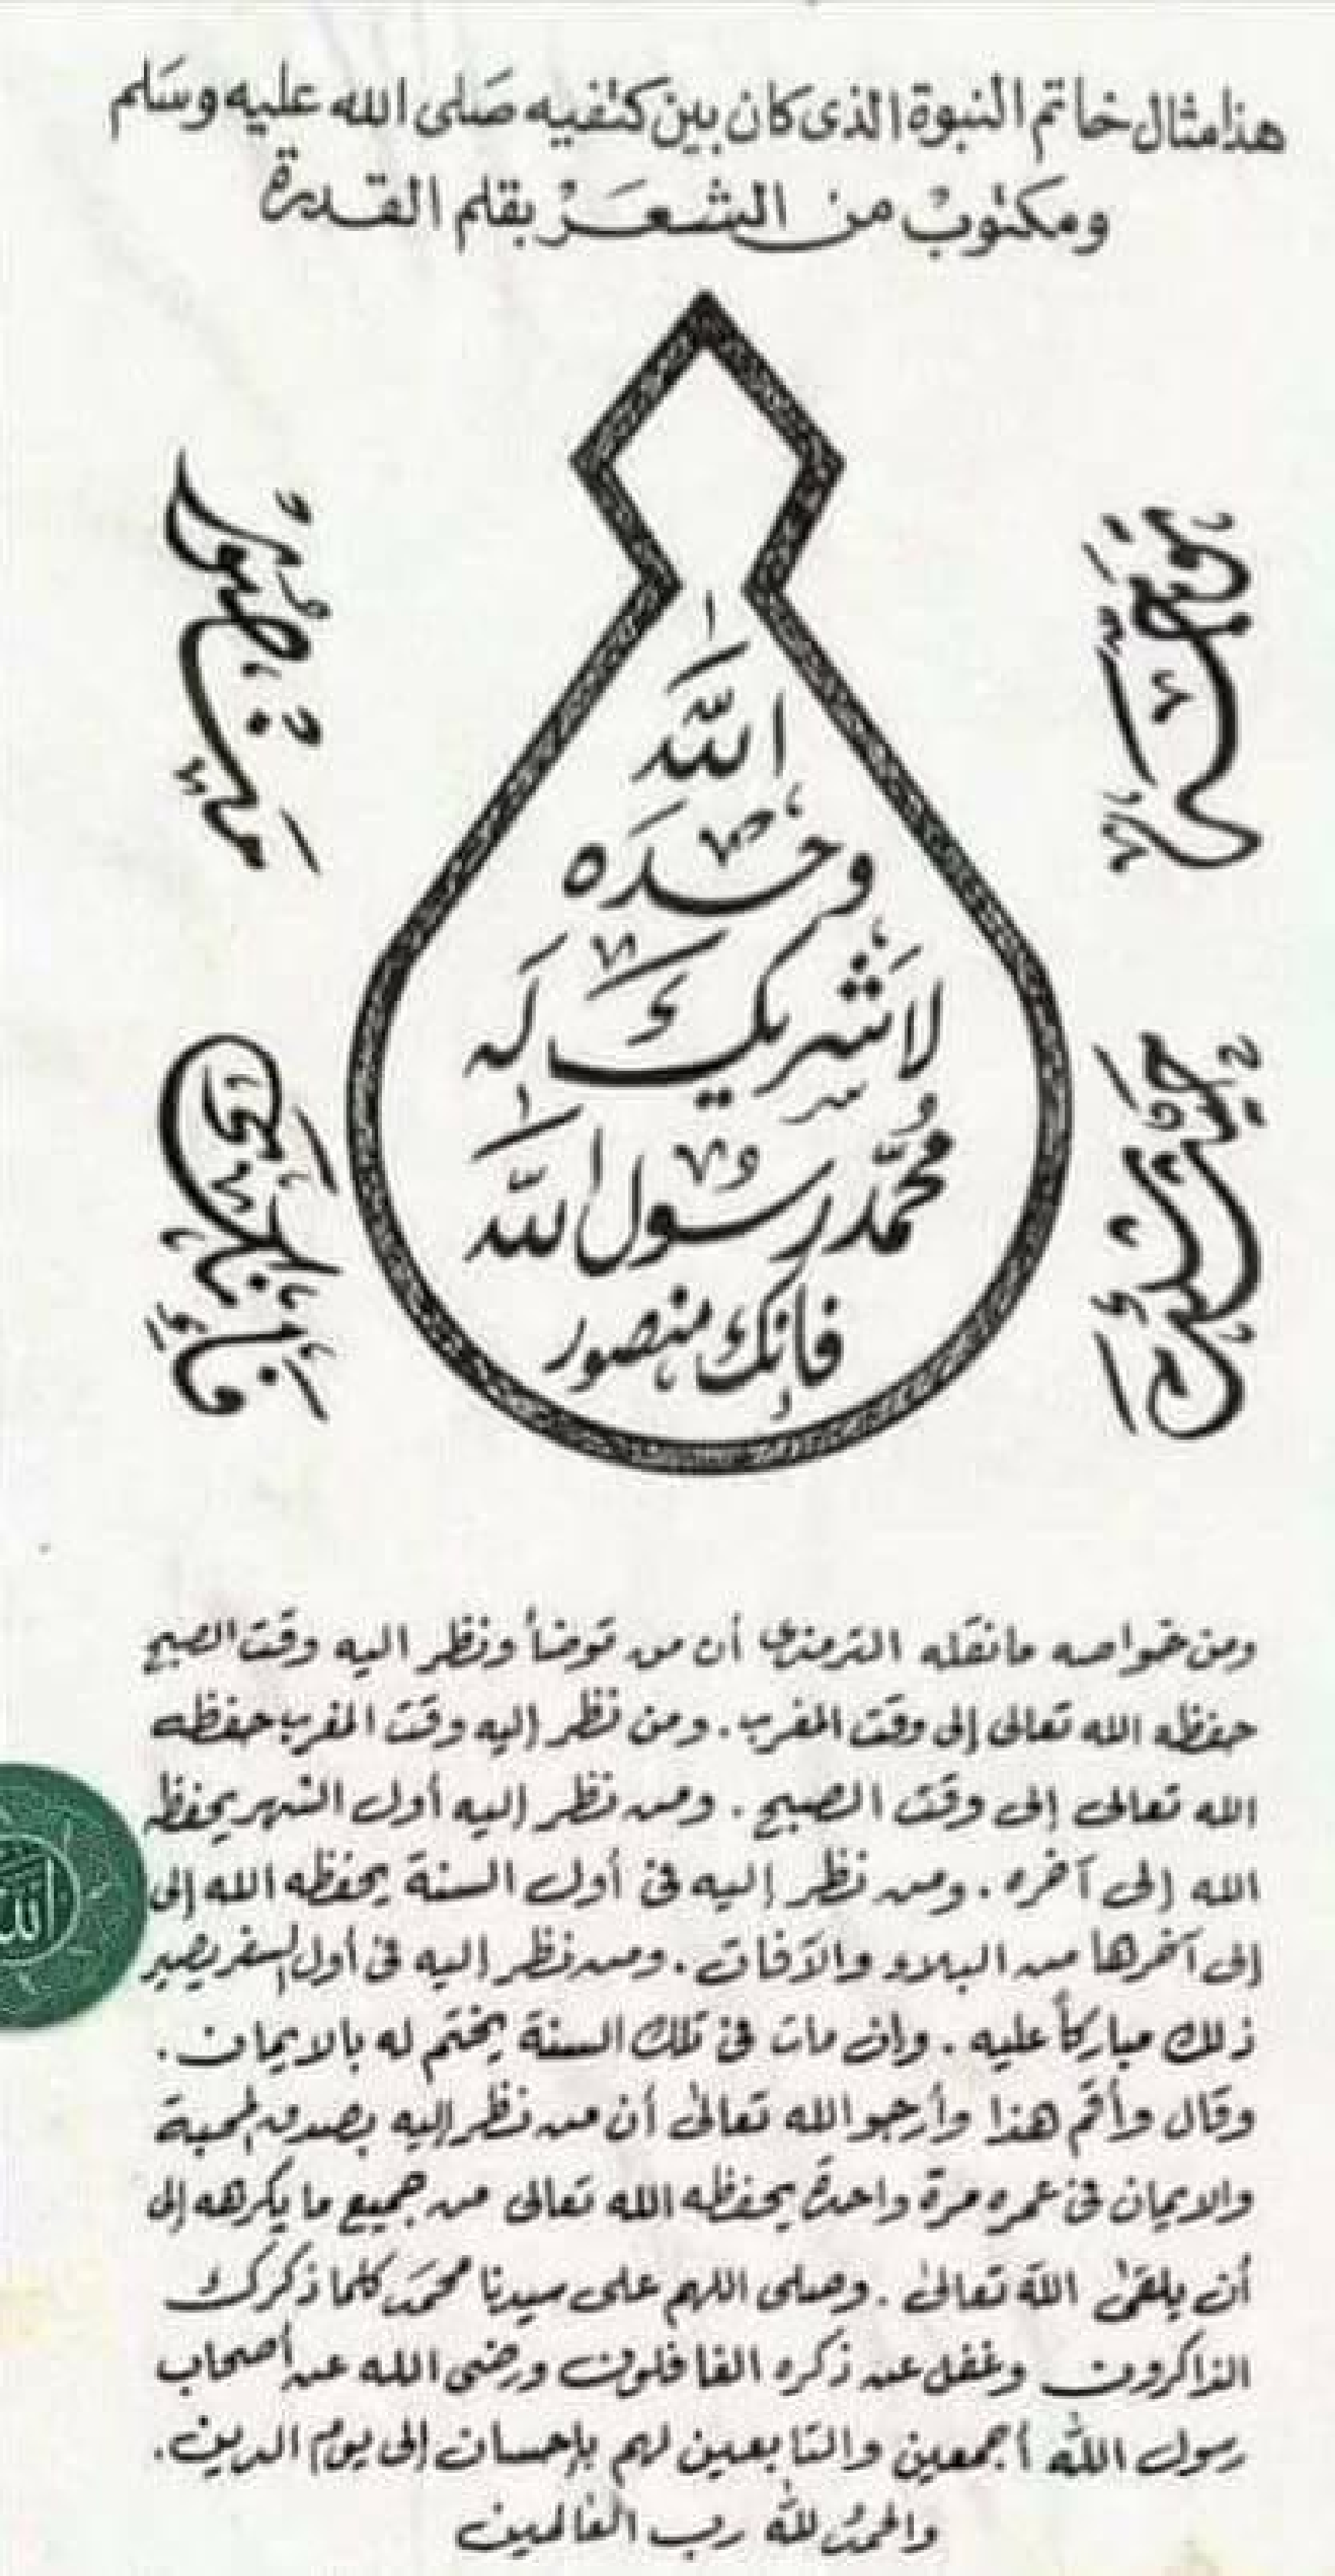 هذا مثال خاتم النبوة الذى كان بين كتفيه صَلى الله عليه وسَلم
ومكتوبٌ من الشعَرْ بقلم القدرة
الله
وحْدَه
لا شريك لَه
محُمّد رسول الله
فانك منصور
توجه حيث شئت
فإنك منصور
ومن خواصه ما نقله الترمذى أن من توضأ ونظر اليه وقت الصبح
حفظه الله تعالى إلى وقت المغرب . ومن نظر إليه وقت المغرب حفظه
الله تعالى إلى وقت الصبح . ومن نظر إليه أول الشهر يحفظه
الله إلى آخره . ومن نظر إليه فى أول السنة يحفظه الله إلى
إلى آخرها من البلاء والآفات . ومن نظر إليه فى أول السفر يصير
ذلك مباركاً عليه . وان مات فى تلك السنة يختم له بالايمان .
وقال وأقم هذا وأرجو الله تعالى أن من نظر إليه بصدق المحبة
والايمان فى عمره مرة واحدة يحفظه الله تعالى من جميع ما يكرهه إلى
أن يلقى الله تعالى . وصلى اللهم على سيدنا محمَد كلما ذكرك
الذاكرون وغفل عن ذكره الغافلون ورضى الله عن أصحاب
رسول الله أجمعين والتابعين لهم بإحسان إلى يوم الدين .
والحمدُ لله رب العالمين
الله